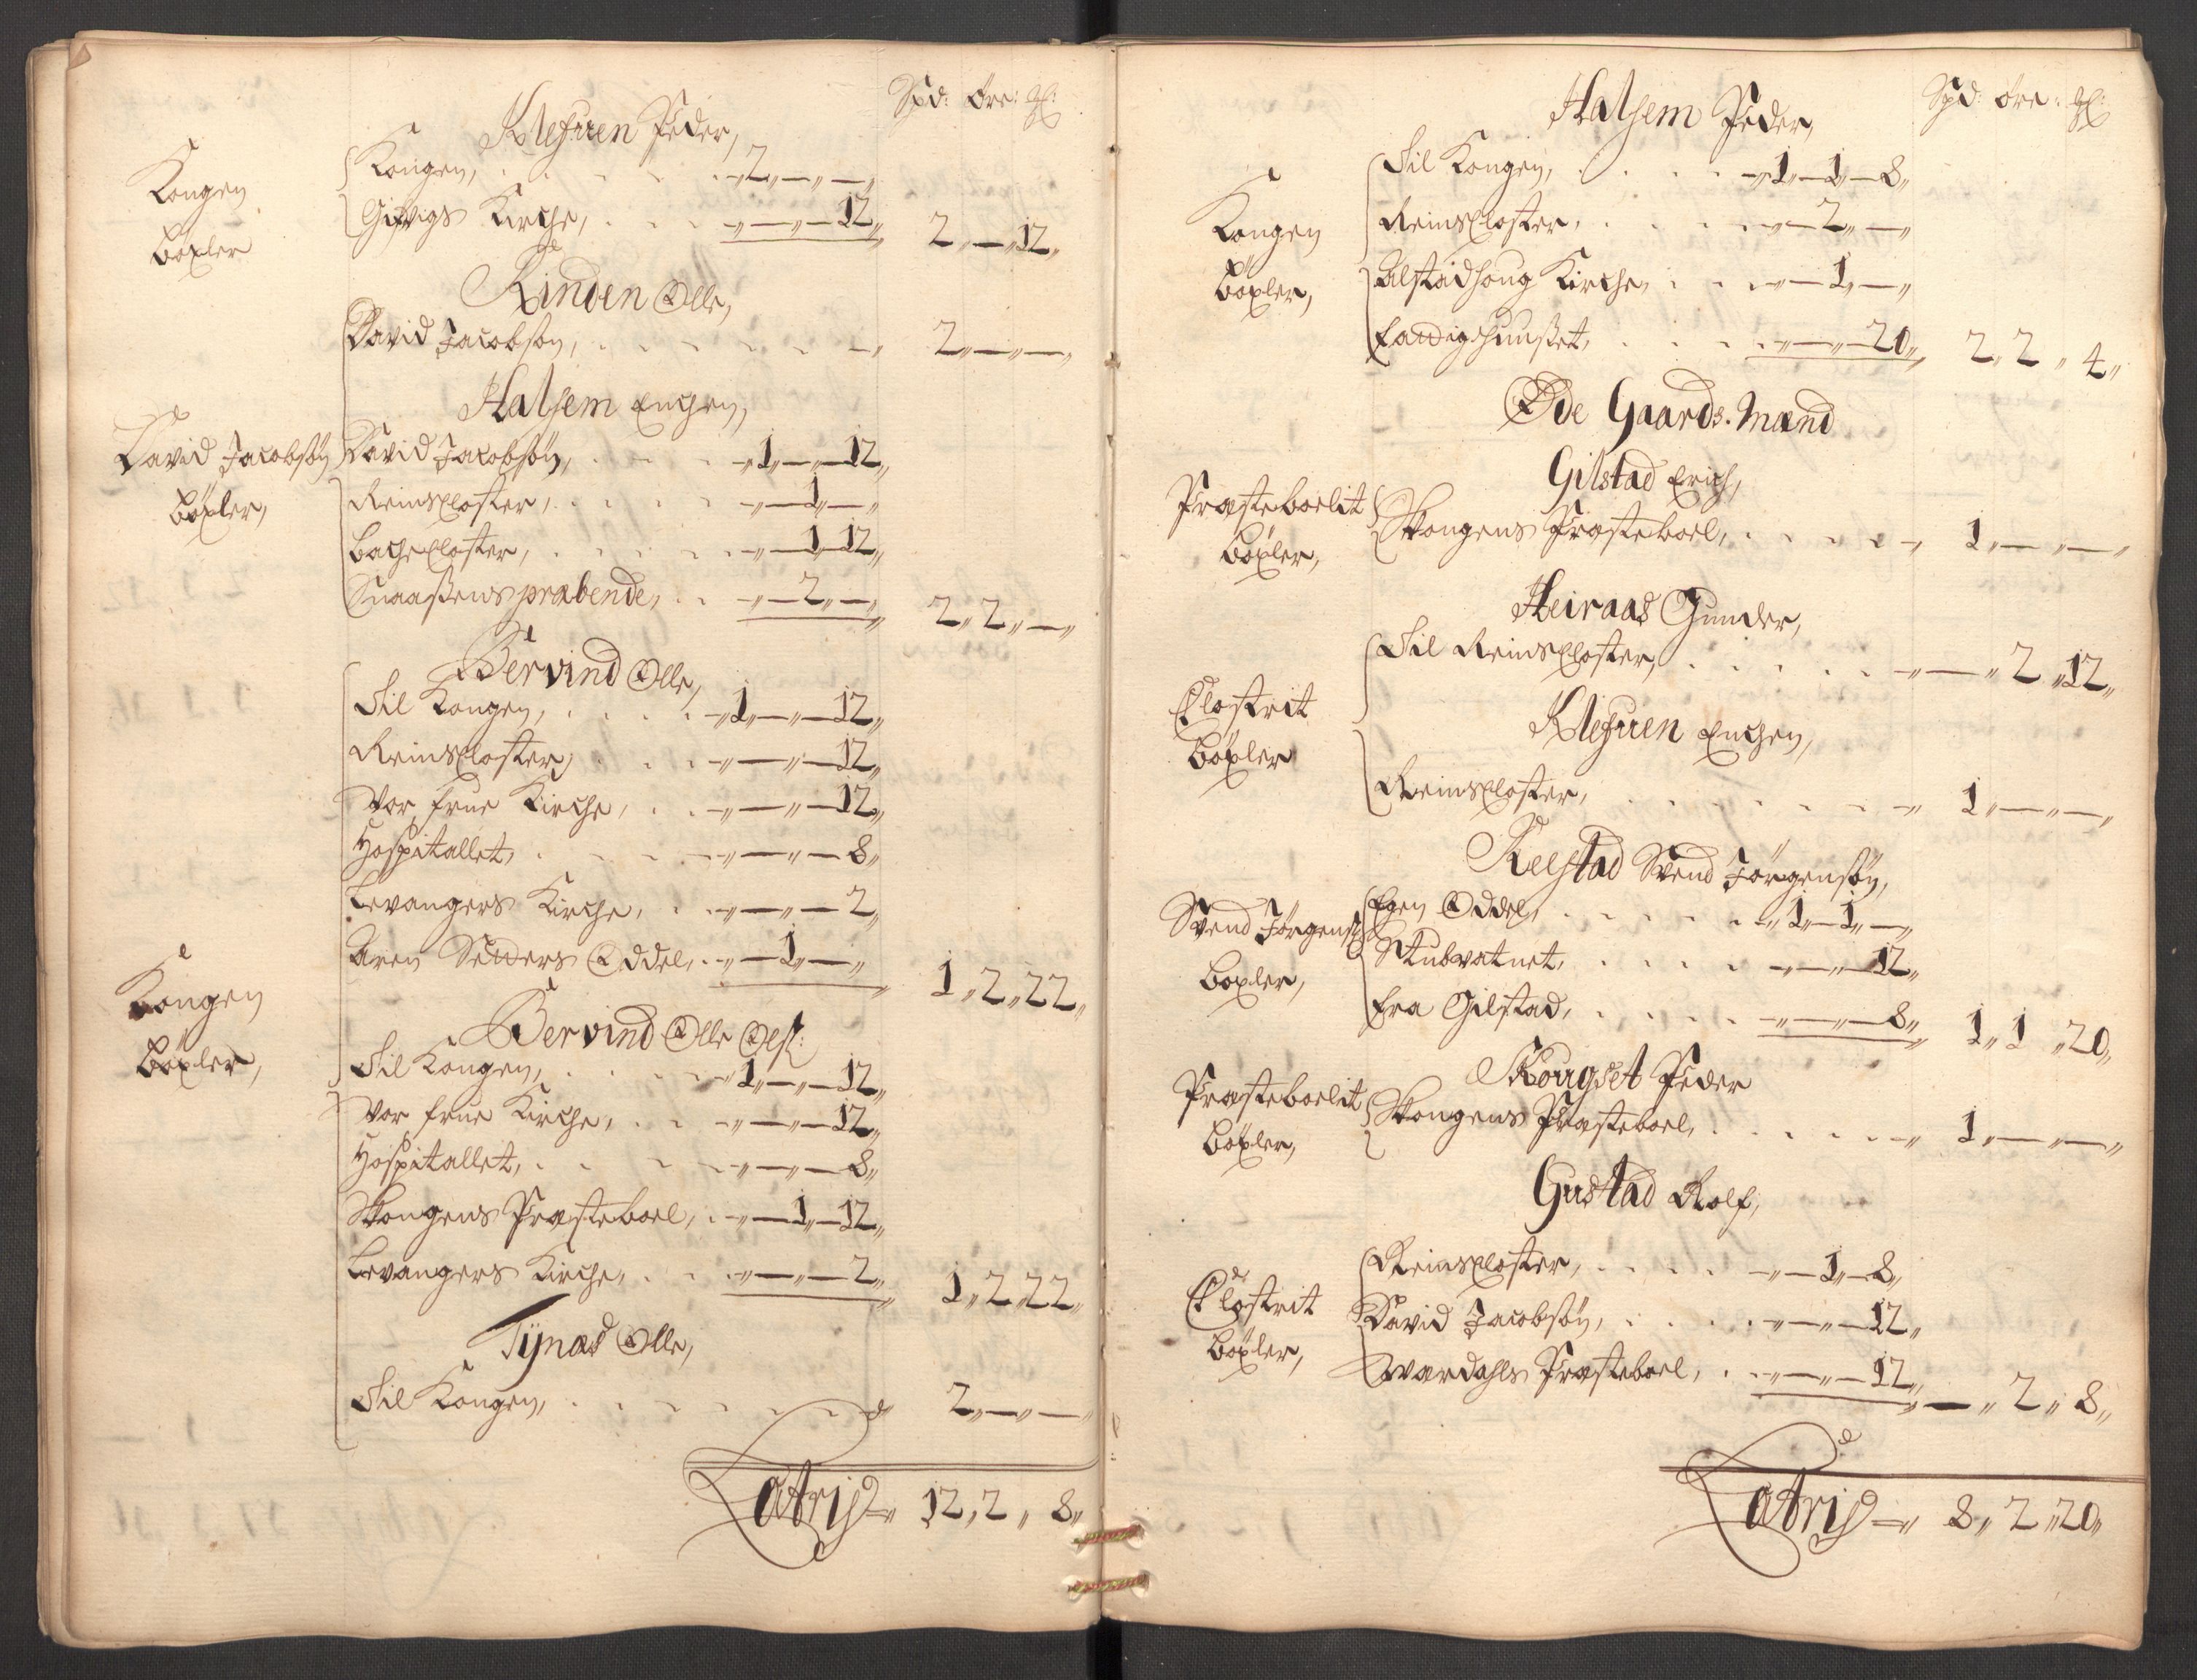 Spd: Øre: 
Klefuen Peder,
Kongen Böxler
Kongen, 2 — —
Gifvigs Kirche, — — 12, 2 — 12,
Rinden Olle,
David Jacobsön, 2 — —
Halsem Enchen,
David Jacobsön Böxler,
David Jacobsön, 1 — 12,
Reinscloster, — 1 —
Bachecloster, — 1 12,
Snaasens præbende, — 2 — 2, 2, —
Bervind Olle,
Til Kongen, 1 — 12,
Reinscloster, — — 12,
Vor frue Kirche, — — 12,
Hospitallet, — — 8,
Levangers Kirche, — — 2,
Aren Oddel, — 1 — 1, 2, 22,
Kongen Böxler,
Bervind Olle Olss:
Til Kongen, 1 — 12,
Vor frue Kirche, — — 12,
Hospitallet, — — 8,
Schongens Præsteboel, — 1 12,
Levangers Kirche, — — 2, 1, 2, 22,
Tÿnæs Olle,
Til Kongen, 2 — —
Latris 12, 2, 8,
Spd: Øre: 
Halsem Peder,
Kongen Böxler,
Til Kongen, 1 1 8,
Reinscloster, — 2 —
Alstadhoug Kirche, — 1 —
Fattighuuset, — — 20, 2, 2, 4,
Øde Gaards. Mænd
Gilstad Erich,
Præsteboelit Böxler,
Schongens Præsteboel, 1 — —
Heiraas Gunder,
Til Reinscloster, — 2, 12,
Closterit Böxler
Klefuen Enchen,
Reinscloster, 1 — —
Relstad Svend Jörgensön,
Svend Jörgens: Böxler,
Egen Oddel, 1 1 —
Stubvatnet, — — 12,
Fra Gilstad, — — 8, 1, 1, 20,
Skougset Peder
Præsteboelit Böxler,
Schongens Præsteboel, 1 — —
Gustad Rolf,
Closterit Böxler,
Reinscloster, — 1 8,
David Jacobsön, — — 12,
Værdahls Præsteboel, — — 12, — 2, 8,
Latris 8, 2, 20,